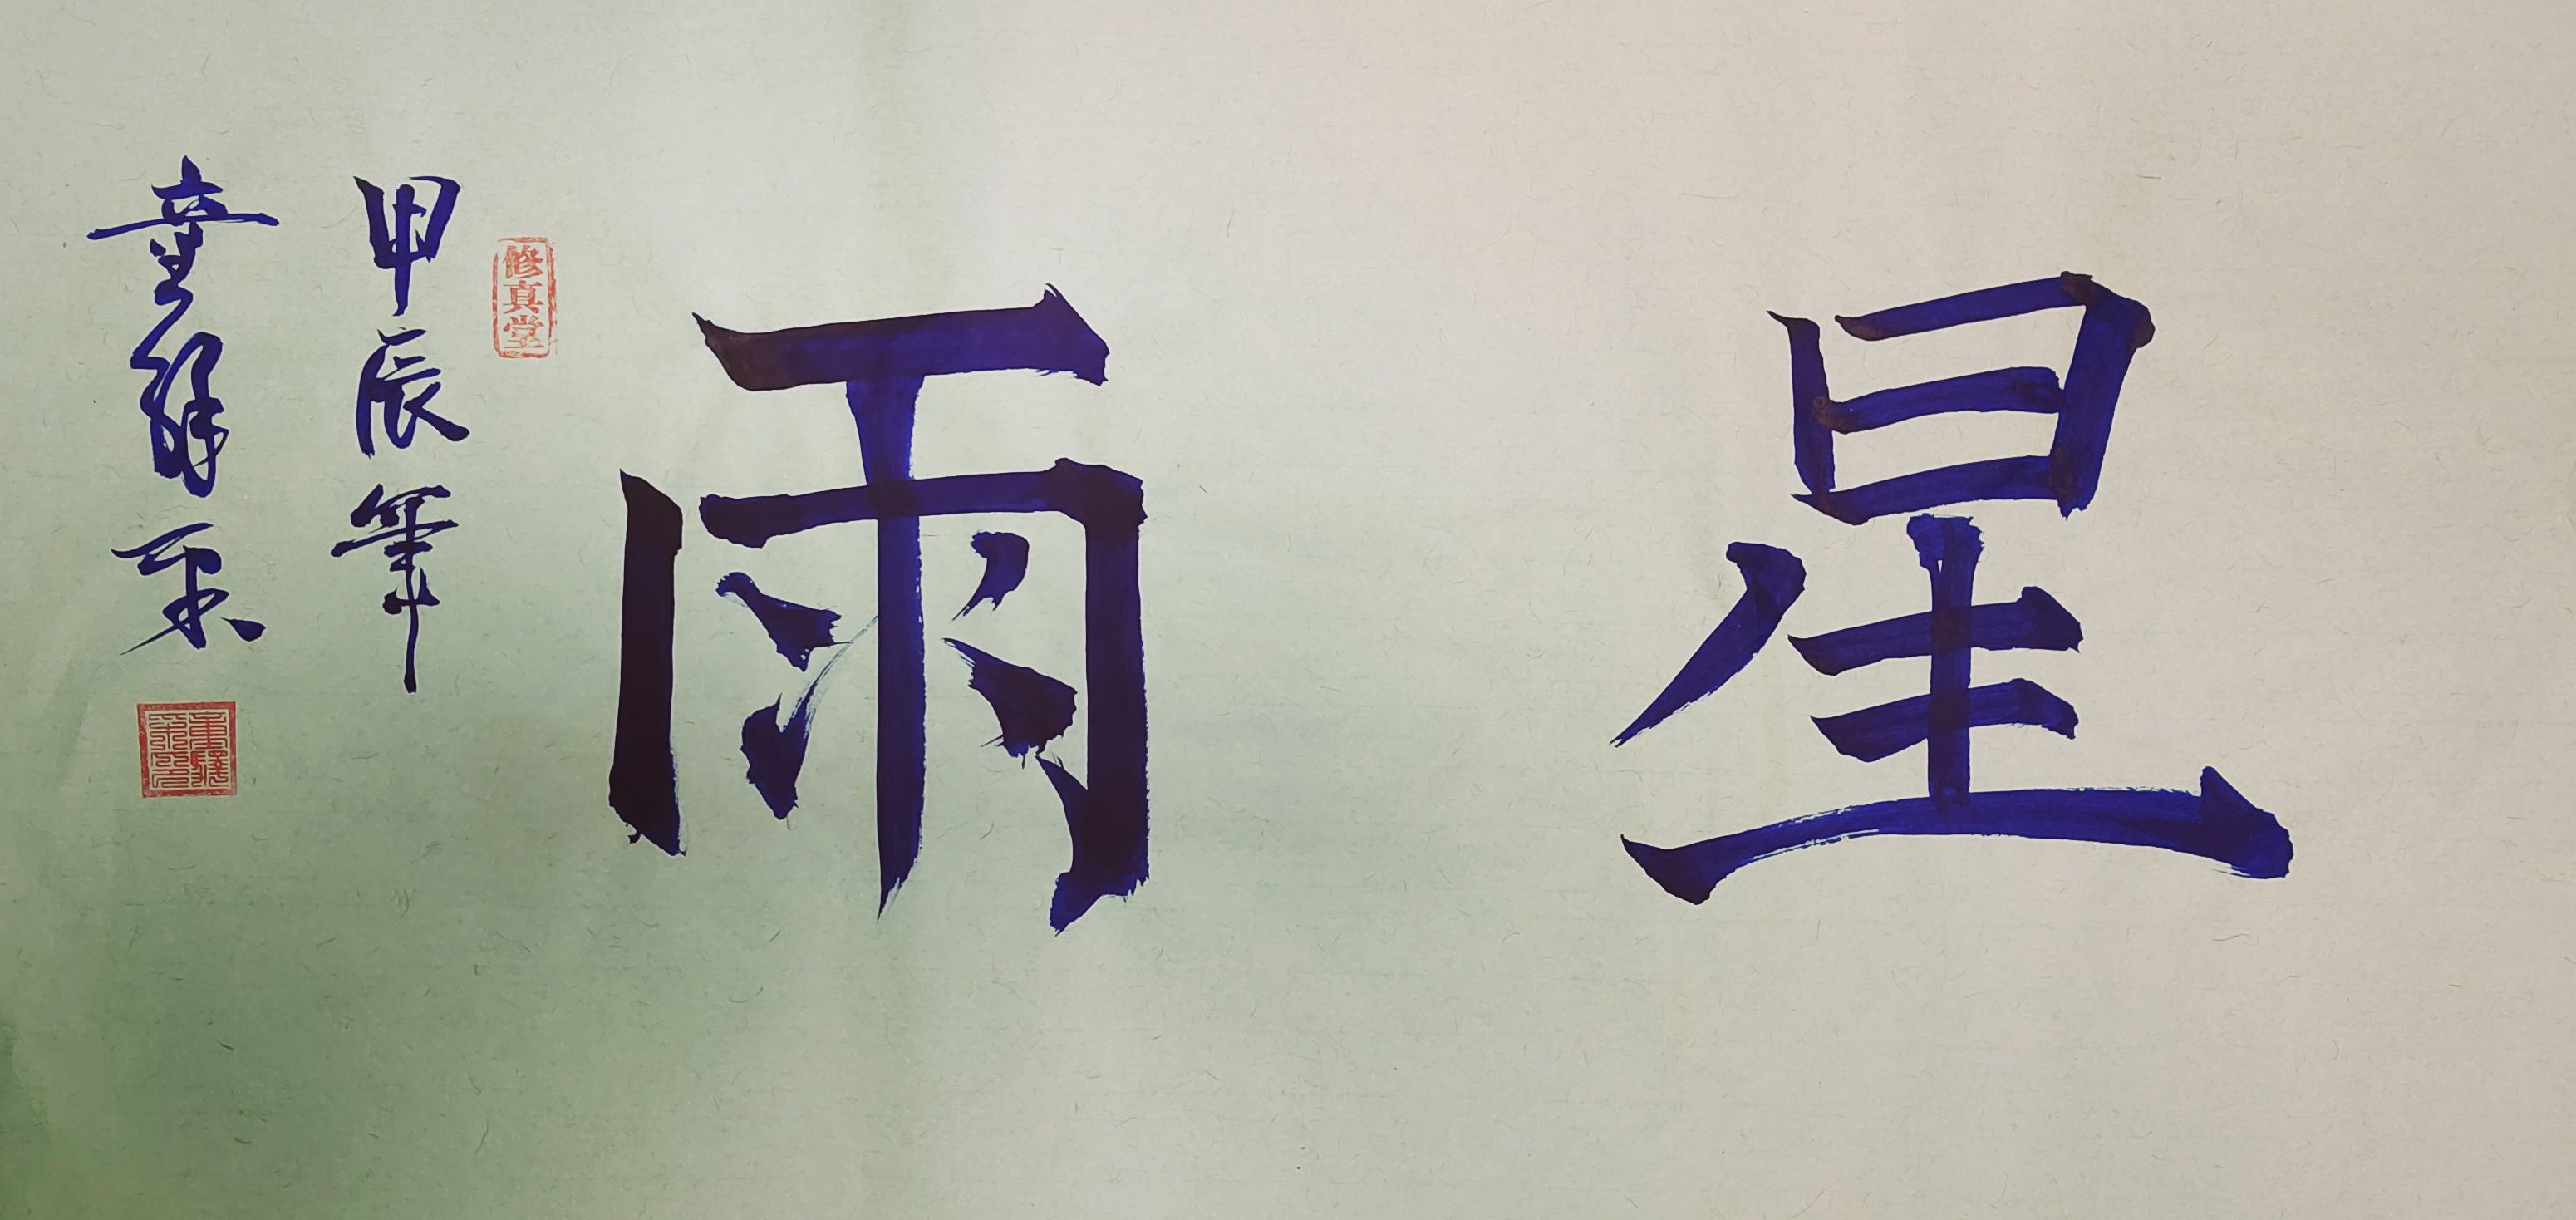 星雨
修真堂
甲辰年
童